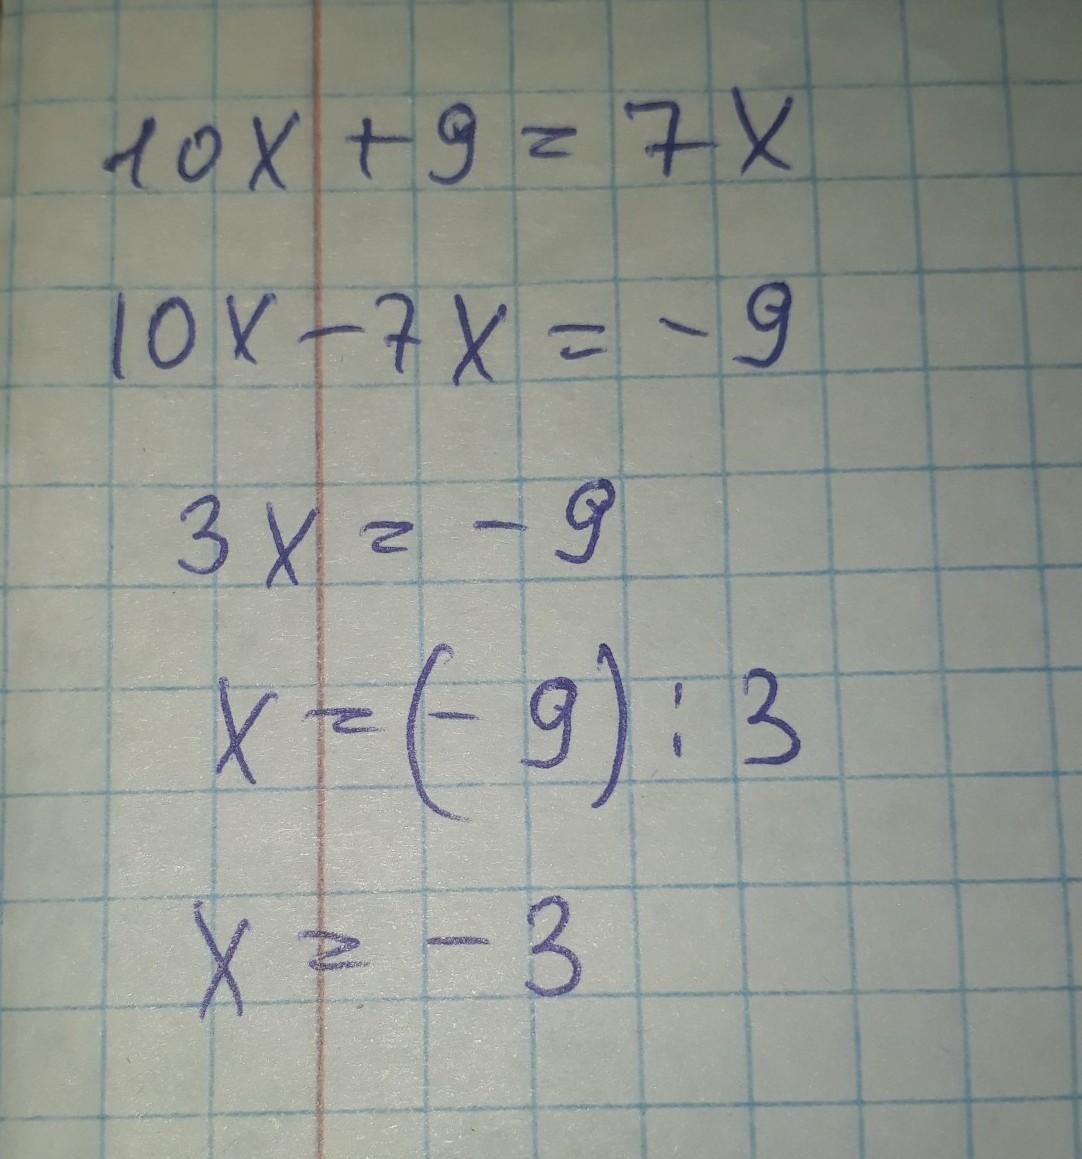 10x + 9 = 7x
10x - 7x = - 9
3x = - 9
x = (- 9) : 3
x = - 3